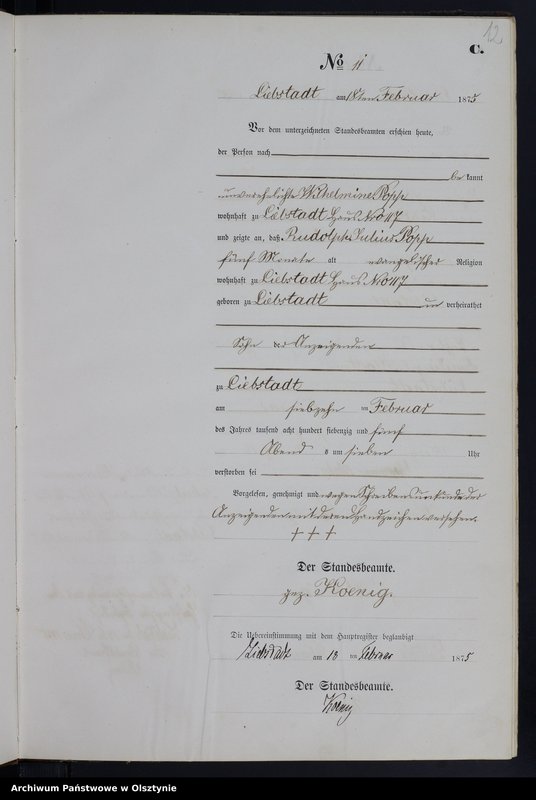 12
C.
No 11
Liebstadt am 18ten Februar 1875
Vor dem unterzeichneten Standesbeamten erschien heute,
der Person nach
be kannt
unverehelichte Wilhelmine Popp
wohnhaft zu Liebstadt Haus No 117
und zeigte an, daß Rudolph Julius Popp
fünf Monate alt evangelischer Religion
wohnhaft zu Liebstadt Haus No 117
geboren zu Liebstadt un verheirathet
Sohn der Anzeigenden
zu Liebstadt
am siebzehn ten Februar
des Jahres tausend acht hundert siebenzig und fünf
Abend s um sieben Uhr
verstorben sei
Vorgelesen, genehmigt und wegen Schreibensunkunde der
Anzeigenden mit deren Handzeichen versehen.
+ + +
Der Standesbeamte.
gez. Koenig.
Die Uebereinstimmung mit dem Hauptregister beglaubigt
Liebstadt am 18 ten Februar 1875
Der Standesbeamte.
Koenig
Archiwum Państwowe w Olsztynie